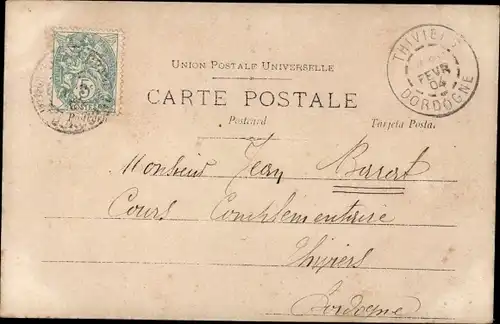 UNION POSTALE UNIVERSELLE
CARTE POSTALE
Postcard Tarjeta Posta.
THIVIERS
FEVR
04
DORDOGNE
5
Monsieur Jean Barat
Cours Complémentaire
Thiviers
Dordogne